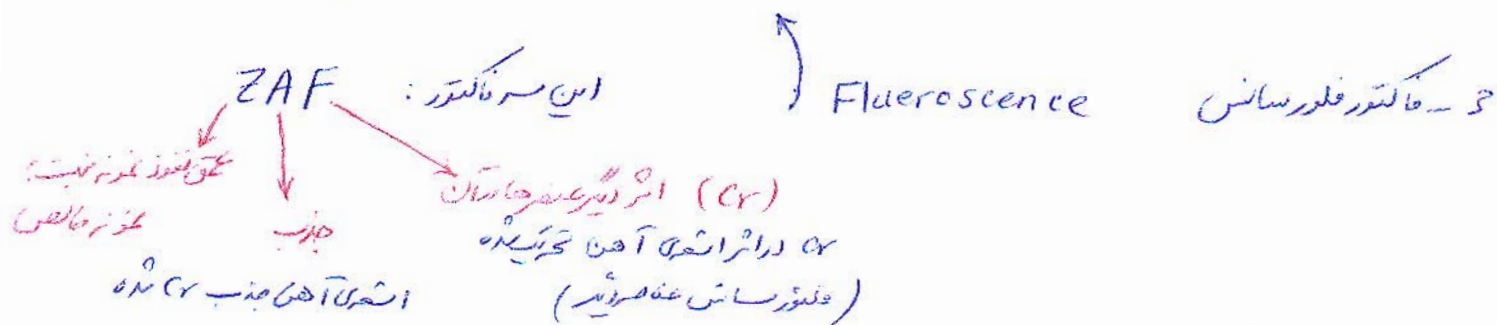 3 - فاکتور فلورسانس Flueroscence
این سه فاکتور: ZAF
عمق نفوذ نمونه نسبت به نمونه خالص
جذب
اشعه‌ی آهن جذب Cr شده
(Cr) اثر دیگر عنصرها در آن
Cr در اثر اشعه‌ی آهن تحریک شده
(فلورسانس عناصر دیگر)